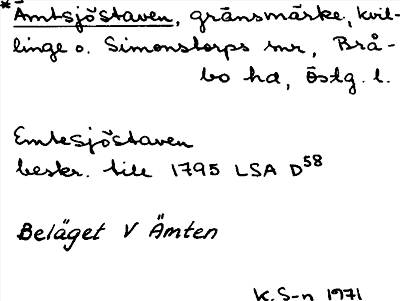 *Ämtsjöstaven, gränsmärke, Kvil-
linge o. Simonstorps snr, Brå-
bo hd, Östg. l.
Emtesjöstaven
beskr. till 1795 LSA D58
Beläget V Ämten
K.S-n 1971